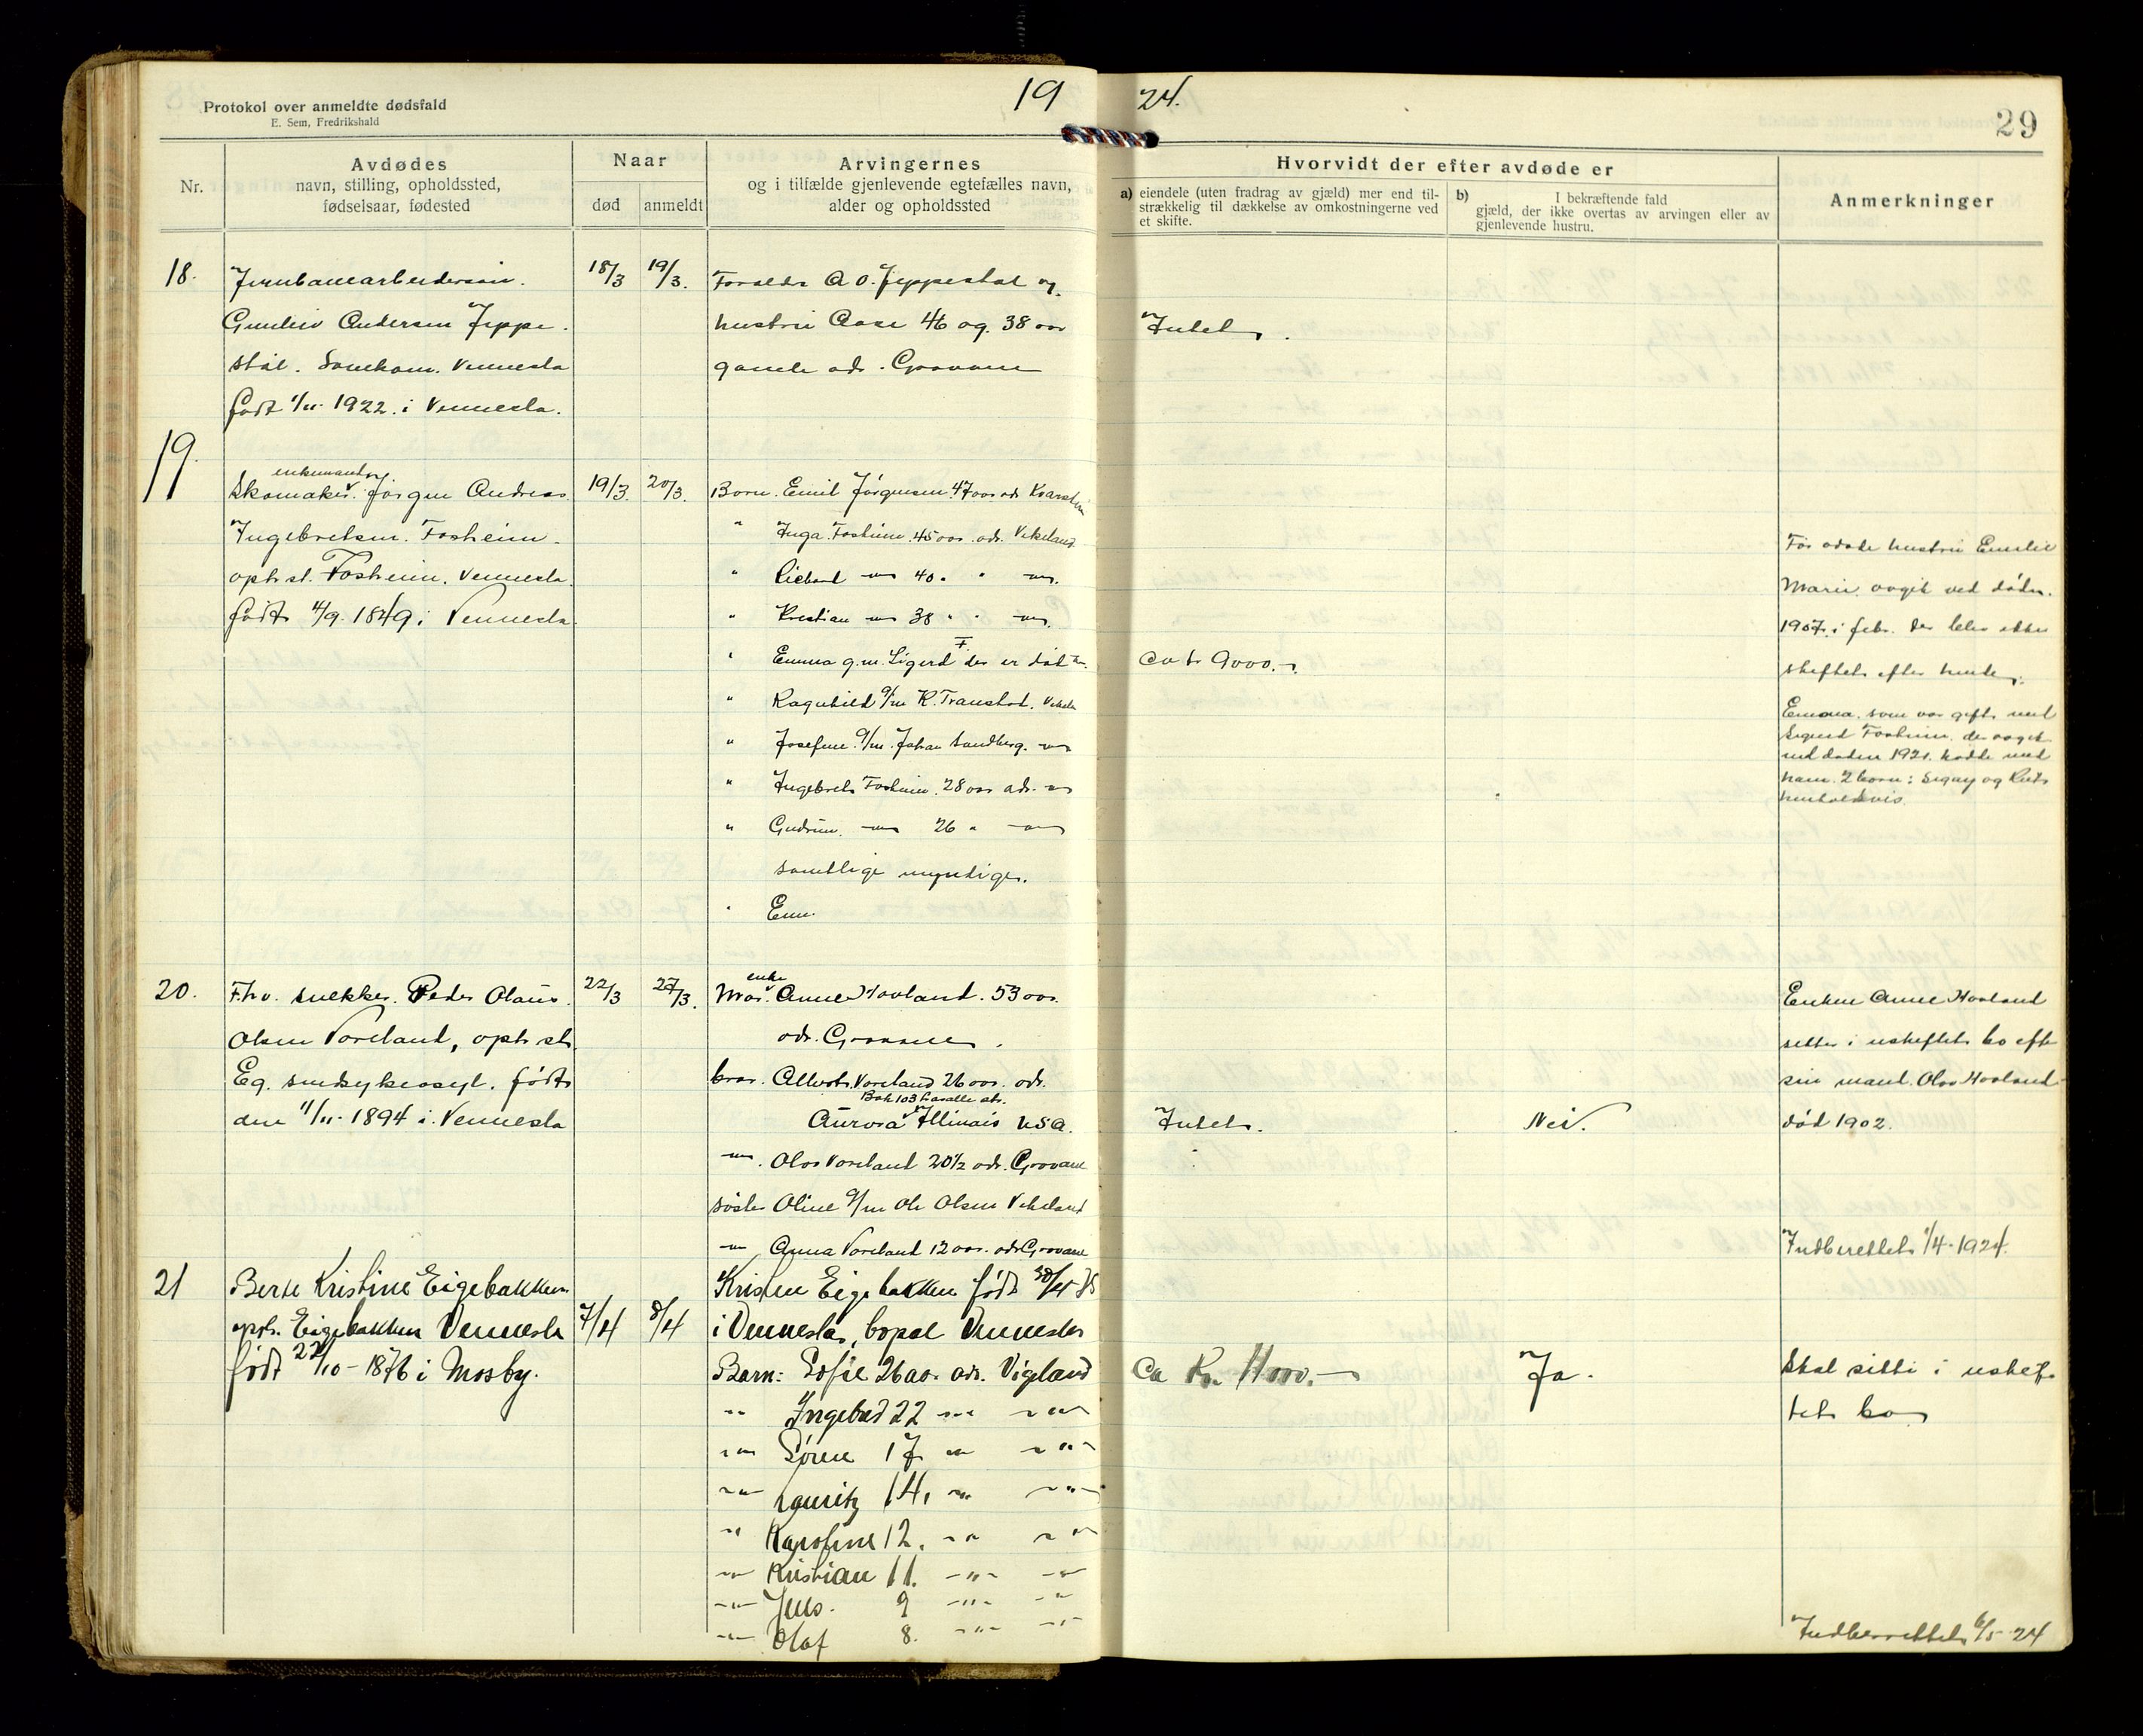 Protokol over anmeldte dødsfald
E. Sem, Fredrikshald
19 24.
29
Nr.
Avdødes
navn, stilling, opholdssted,
fødselsaar, fødested
Naar
død
anmeldt
Arvingernes
og i tilfælde gjenlevende egtefælles navn,
alder og opholdssted
Hvorvidt der efter avdøde er
a) eiendele (uten fradrag av gjæld) mer end til-
strækkelig til dækkelse av omkostningerne ved
et skifte.
b) I bekræftende fald
gjæld, der ikke overtas av arvingen eller av
gjenlevende hustru.
Anmerkninger
18.
Andersen Jeppe
støl. Vennesla
født 1/11 1922 i Vennesla.
18/3
19/3.
Forældr A O. Jeppestøl og
hustru Aase 46 og 38 aar
gamle adr. Grovane
Intet.
19.
enkemand
Skomaker Jørgen Andreas
Ingebretsen Fosheim.
oph.st. Fosheim, Vennesla.
født 4/9 1849 i Vennesla
19/3.
20/3.
Børn. Emil Jørgensen 47 aar adr Kvarstein
" Inga Fosheim 45 aar adr. Vikeland
" Richard 40 "
" Kristian 38 "
" Emma g.m. Sigurd F. der er død
" Ragnhild g/m K. Vikeland
" Josefine g/m Johan Sandberg.
" Ingebret Fosheim 28 aar adr.
" Gudrun 26 "
samtlige myndige.
" Em.
ca kr 9000.-
hustru Emilie
Marie avgik ved døden
1907 i febr. der blev ikke
skiftet efter hende.
Emma som var gift med
Sigurd Fosheim der avgik
ved døden 1921 hadde med
ham 2 barn: Signy og Ruth
20.
Fhv. snekker Peder Olaus
Olsen Voreland, oph.st.
Eg sindsykeasyl. født
den 11/11 1894 i Vennesla
22/3
27/3.
enke
Mor Anne Hovland 53 aar.
adr. Grovane.
bror Albert Voreland 26 aar adr.
Box 103 Lasalle str.
Aurora Illinois USA.
Olav Voreland 20 1/2 adr. Grovane
søster Oline g/m Ole Olsen Vikeland
Anna Voreland 12 aar adr Grovane
Intet.
Nei.
Enken Anne Hovland
sitter i uskiftet bo efter
sin mand Olav Hovland
død 1902.
Indberettet 1/4 1924.
21
Berte Kristine Eigebakken
opst. Eigebakken Vennesla
født 22/10-1876 i Mosby.
7/4
8/4
Kristen Eigebakken født 30/4 75
i Vennesla, bopæl Vennesla
Barn: Sofie 26 aar adr. Vigeland
" Ingebred 22 " "
" Søren 17 " "
" Lauritz 14. " "
" Karoline 12. " "
" Kristian 11. " "
" Jens. 9 " "
" Olaf 8. " "
Ca Kr. 11000.-
Ja.
Skal sitte i uskif-
tet bo
Indberettet 6/5 24